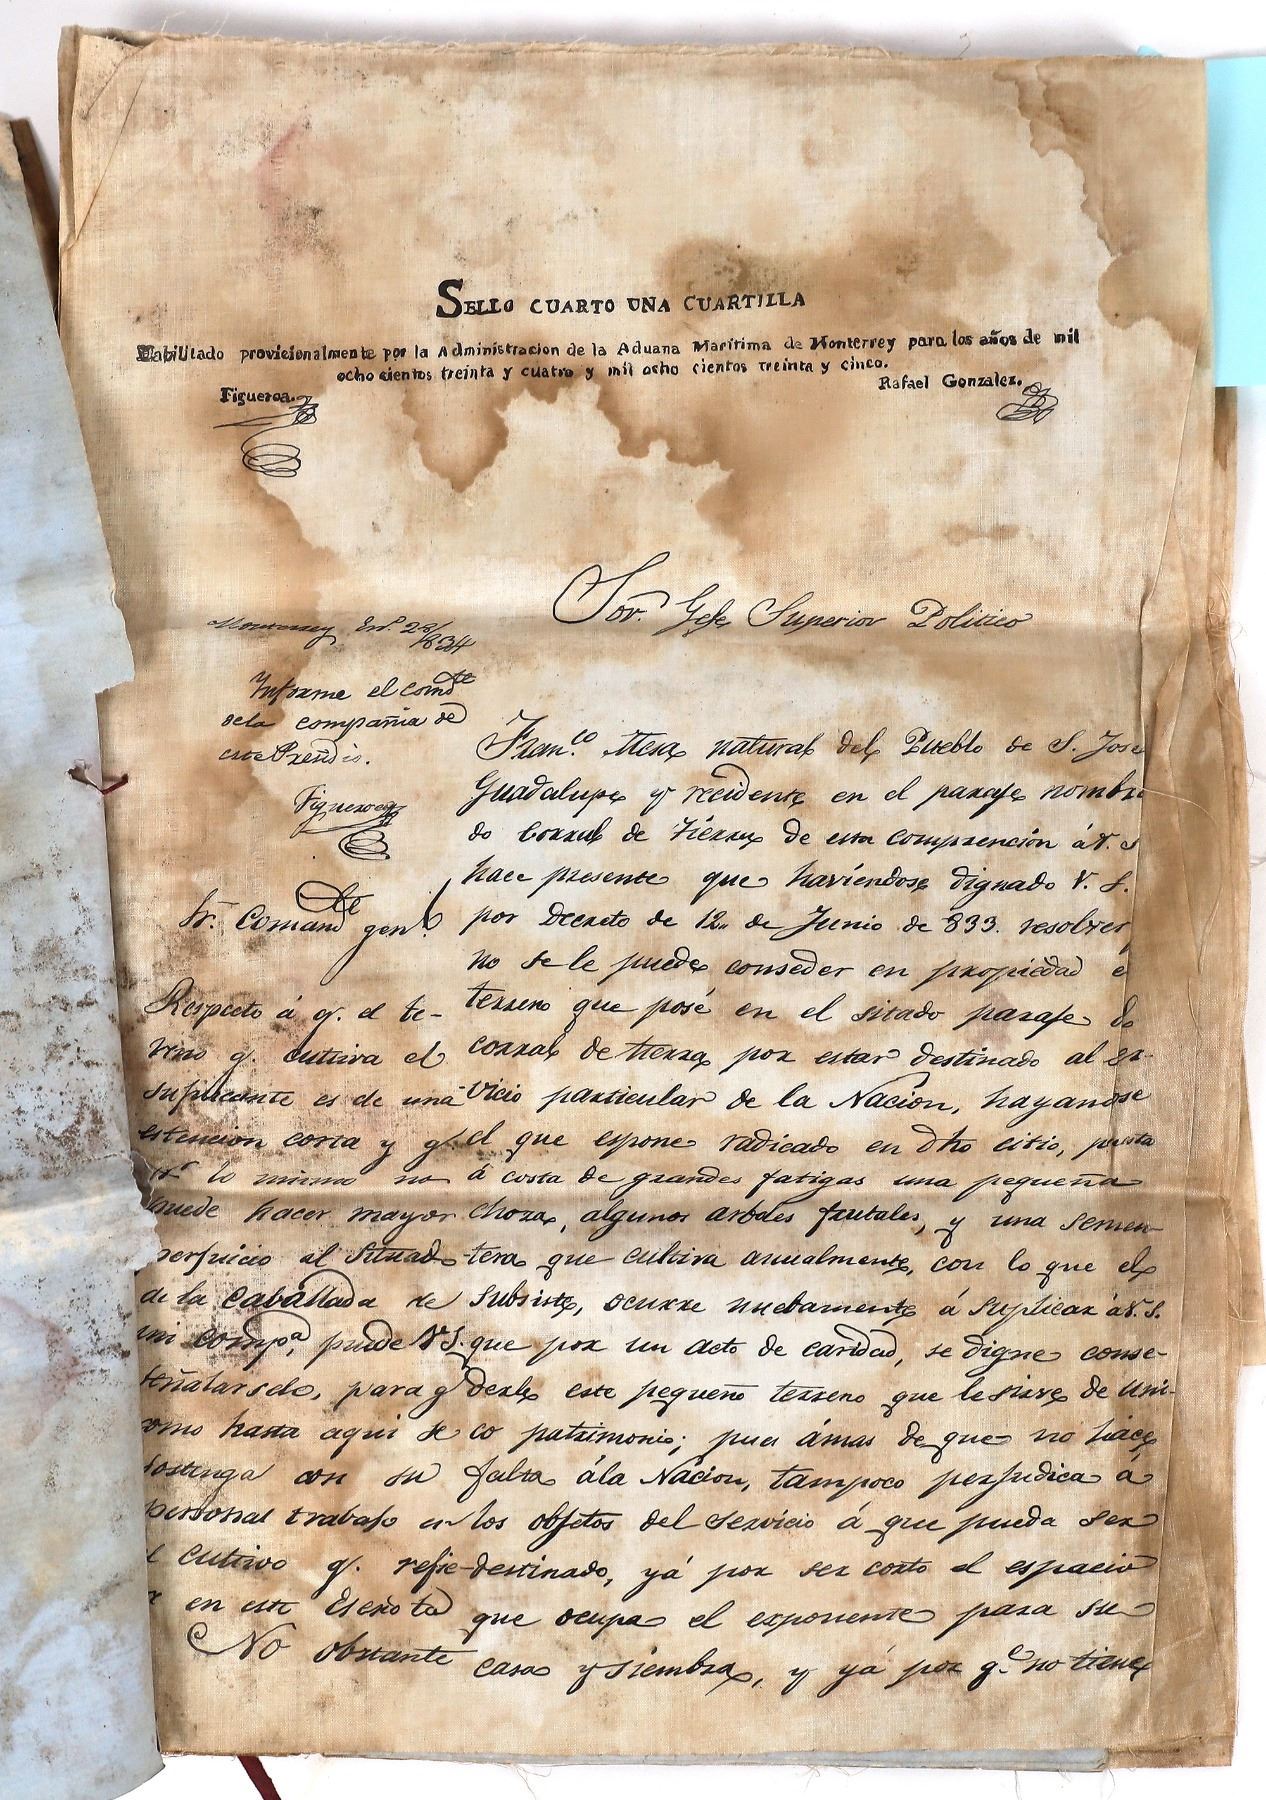 SELLO CUARTO UNA CUARTILLA
Habilitado provicionalmente por la Administracion de la Aduana Maritima de Monterrey para los años de mil
ocho cientos treinta y cuatro y mil ocho cientos treinta y cinco.
Figueroa.
Rafael Gonzalez.
Sor. Gefe Superior Politico
Monterrey En.º 28/834
Informe el comdte
dela compañia de
este Presidio.
Figueroa
Sr. Comandte genl.
Respeto á q. el te-
rreno q. cultiva el
suplicante es de una
estencion corta y q.
lo mismo no
puede hacer mayor
perjuicio al Situado
de la caballada de
mi compª, puede V.S.
señalarselo, para q.
como hasta aqui se
sostenga con su
personal trabajo en
el cultivo q. refie-
re en este Escrito
No obstante
Fran.co Mesa natural del Pueblo de S. Jose
Guadalupe y recidente en el paraje nombra
do Corral de Tierra de esta comprencion á V. S
hace presente que haviendose dignado V. S.
por Decreto de 12 de Junio de 833. resolver
no se le puede conseder en propiedad e
terreno que posé en el sitado paraje do
corral de tierra por estar destinado al ser-
vicio particular de la Nacion, hayandose
el que espone radicado en dho citio, puesta
á costa de grandes fatigas una pequeña
choza, algunos arboles frutales, y una semen-
tera que cultiva anualmente, con lo que el
subsiste, ocurre nuebamente á suplicar á V. S.
que por un acto de caridad, se digne conse-
derle este pequeño terreno que le sirve de uni-
co patrimonio; pues ámas de que no hace
falta ála Nacion, tampoco perjudica á
los objetos del servicio á que pueda ser
destinado, yá por ser corto el espacio
que ocupa el exponente para su
casa y siembra, y yá por q.e no tiene